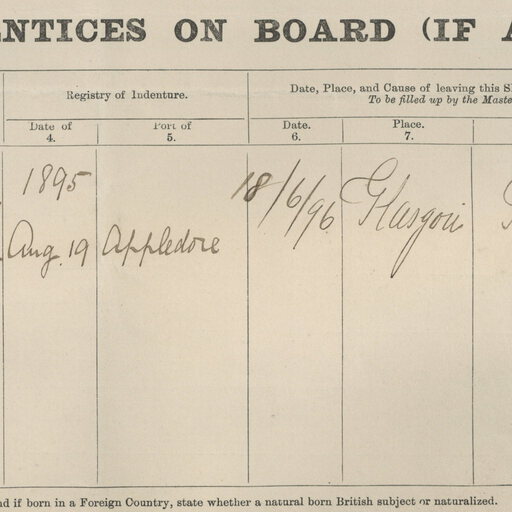 ENTICES ON BOARD (IF A
Registry of Indenture.
Date, Place, and Cause of leaving this S
To be filled up by the Maste
Date of
Port of
Date.
Place.
4.
5.
6.
7.
1895
18/6/96
Glasgow
Aug. 19
Appledore
nd if born in a Foreign Country, state whether a natural born British subject or naturalized.